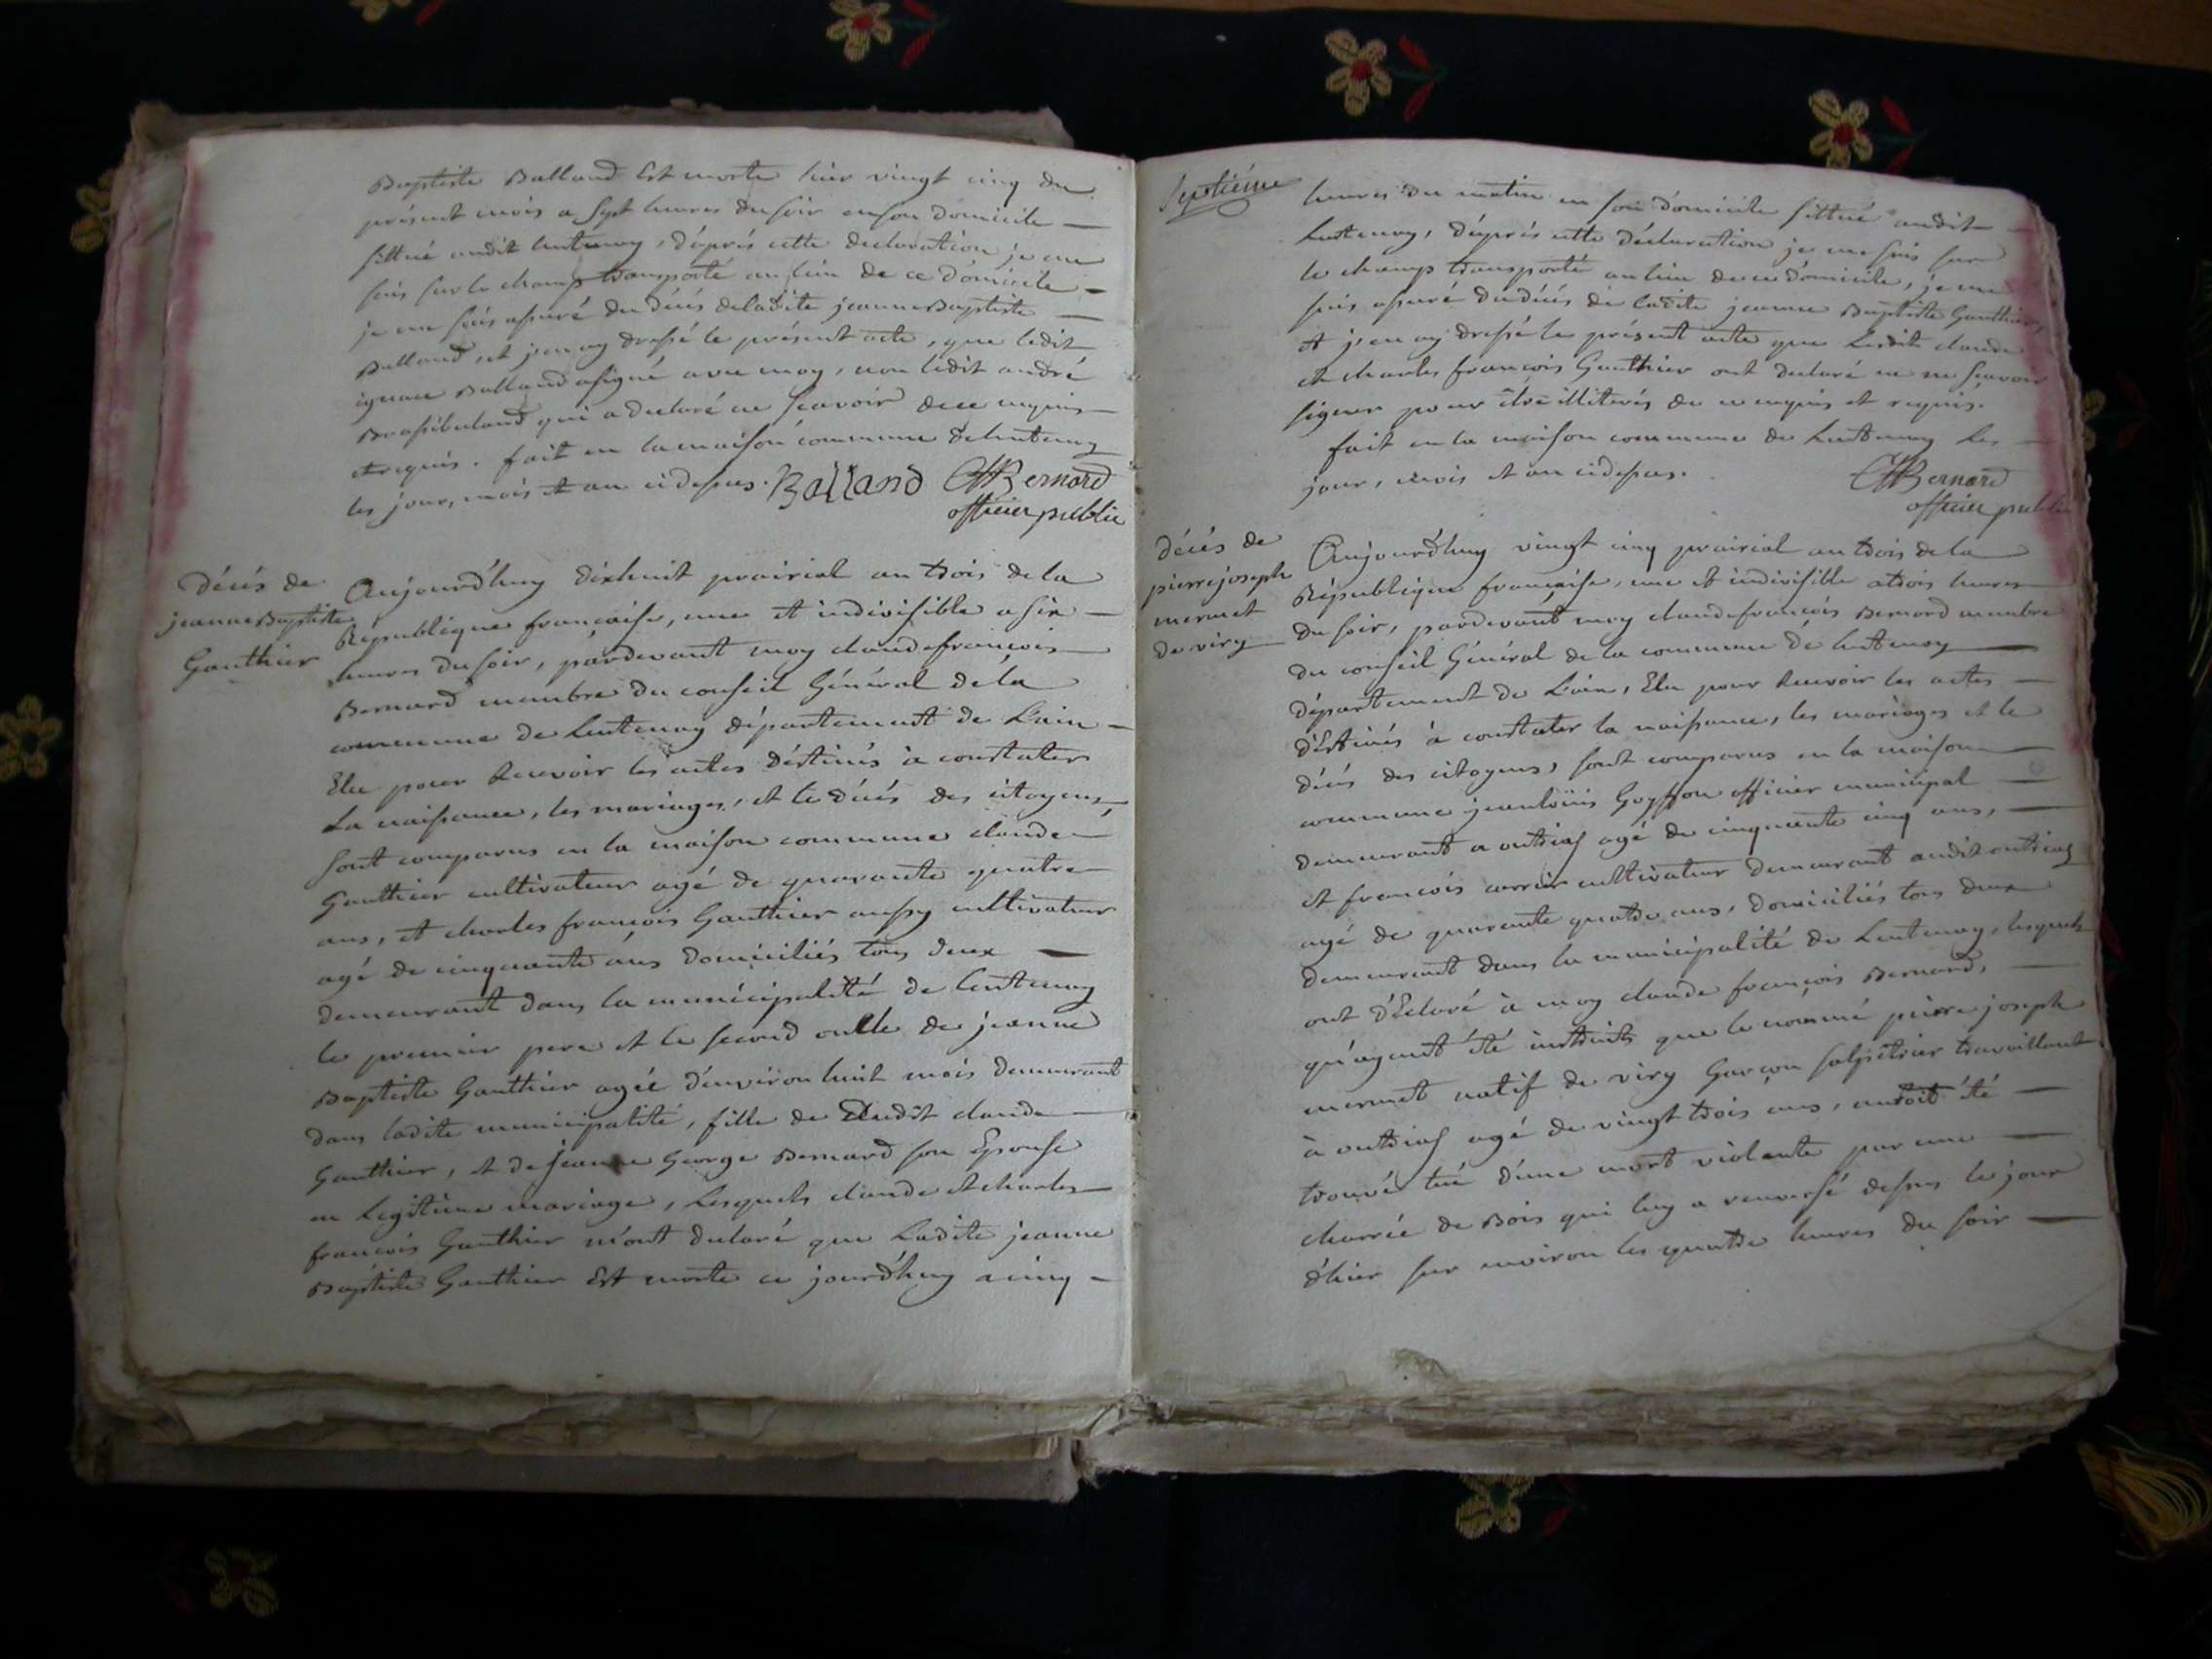 Baptiste Balland Est morte hier vingt cinq du
présent mois a sept heures du soir en son domicile
sittué audit lentenay, d'après cette declaration je me
suis sur le champ transporté au lieu de ce domicile
je me suis assuré du décés de ladite jeanne Baptiste
Balland, et j'en ay dressé le présent acte, que ledit
ignace Balland a signé avec moy, non ledit andré
qui a declaré ne sçavoir de ce enquis
et requis. fait en la maison commune de lentenay
les jour, mois et an cidessus. Balland CfBernard
officier public
décés de
jeanne Baptiste
Gauthier
Aujourd'huy dixhuit prairial an trois de la
République française, une et indivisible a six
heures du soir, pardevant moy claude françois
Bernard membre du conseil Général de la
commune de Lentenay département de L'ain
Elu pour Recevoir les actes déstinés à constater
La naissance, les mariages, et le décés des citoyens,
sont comparus en la maison commune claude
Gauthier cultivateur agé de quarante quatre
ans, et charles françois Gauthier aussy cultivateur
agé de cinquante ans domiciliés tous deux
demeurant dans la municipalité de lentenay
le premier pere et le second oncle de jeanne
Baptiste Gauthier agée d'environ huit mois demeurant
dans ladite municipalité, fille de dudit claude
Gauthier, et de jeanne George Bernard son Epouse
en Legitime mariage, Lesquels claude et charles
françois Gauthier m'ont declaré que Ladite jeanne
Baptiste Gauthier Est morte ce jourd'huy a cinq
septiéme
heures du matin en son domicile sittué audit
Lentenay, d'après cette déclaration je me suis sur
le champ transporté au lieu de ce domicile, je me
suis assuré du décés de ladite jeanne Baptiste Gauthier,
et j'en ay dressé le présent acte que Lesdits claude
et charles françois Gauthier ont declaré ne sçavoir
signer pour étre illiterés de ce enquis et requis.
fait en la maison commune de Lentenay les
jour, mois et an cidessus. CfBernard
officier public
décés de
pierre joseph
mermet
de viry
Aujourd'huy vingt cinq prairial an trois de la
République française, une et indivisible a trois heures
du soir, pardevant moy claude françois Bernard membre
du conseil Général de la commune de lentenay
département de L'ain, Elu pour Recevoir les actes
d'Estinés à constater la naissance, les mariages et le
décés des citoyens, sont comparus en la maison
commune jeanloüis Goyffon officier municipal
demeurant a outriaz agé de cinquante cinq ans,
et françois carrier cultivateur demeurant audit outriaz
agé de quarante quatre ans, domiciliés tous deux
demeurant dans la municipalité de Lentenay, lesquels
ont d'Eclaré à moy claude françois Bernard,
qu'ayant été instruits que le nommé pierre joseph
mermet natif de viry Garçon salpétrier travaillant
à outriaz agé de vingt trois ans, auroit été
trouvé tué d'une mort violente par une
charrée de Bois qui luy a renversé dessus le jour
d'hier sur environ les quatre heures du soir